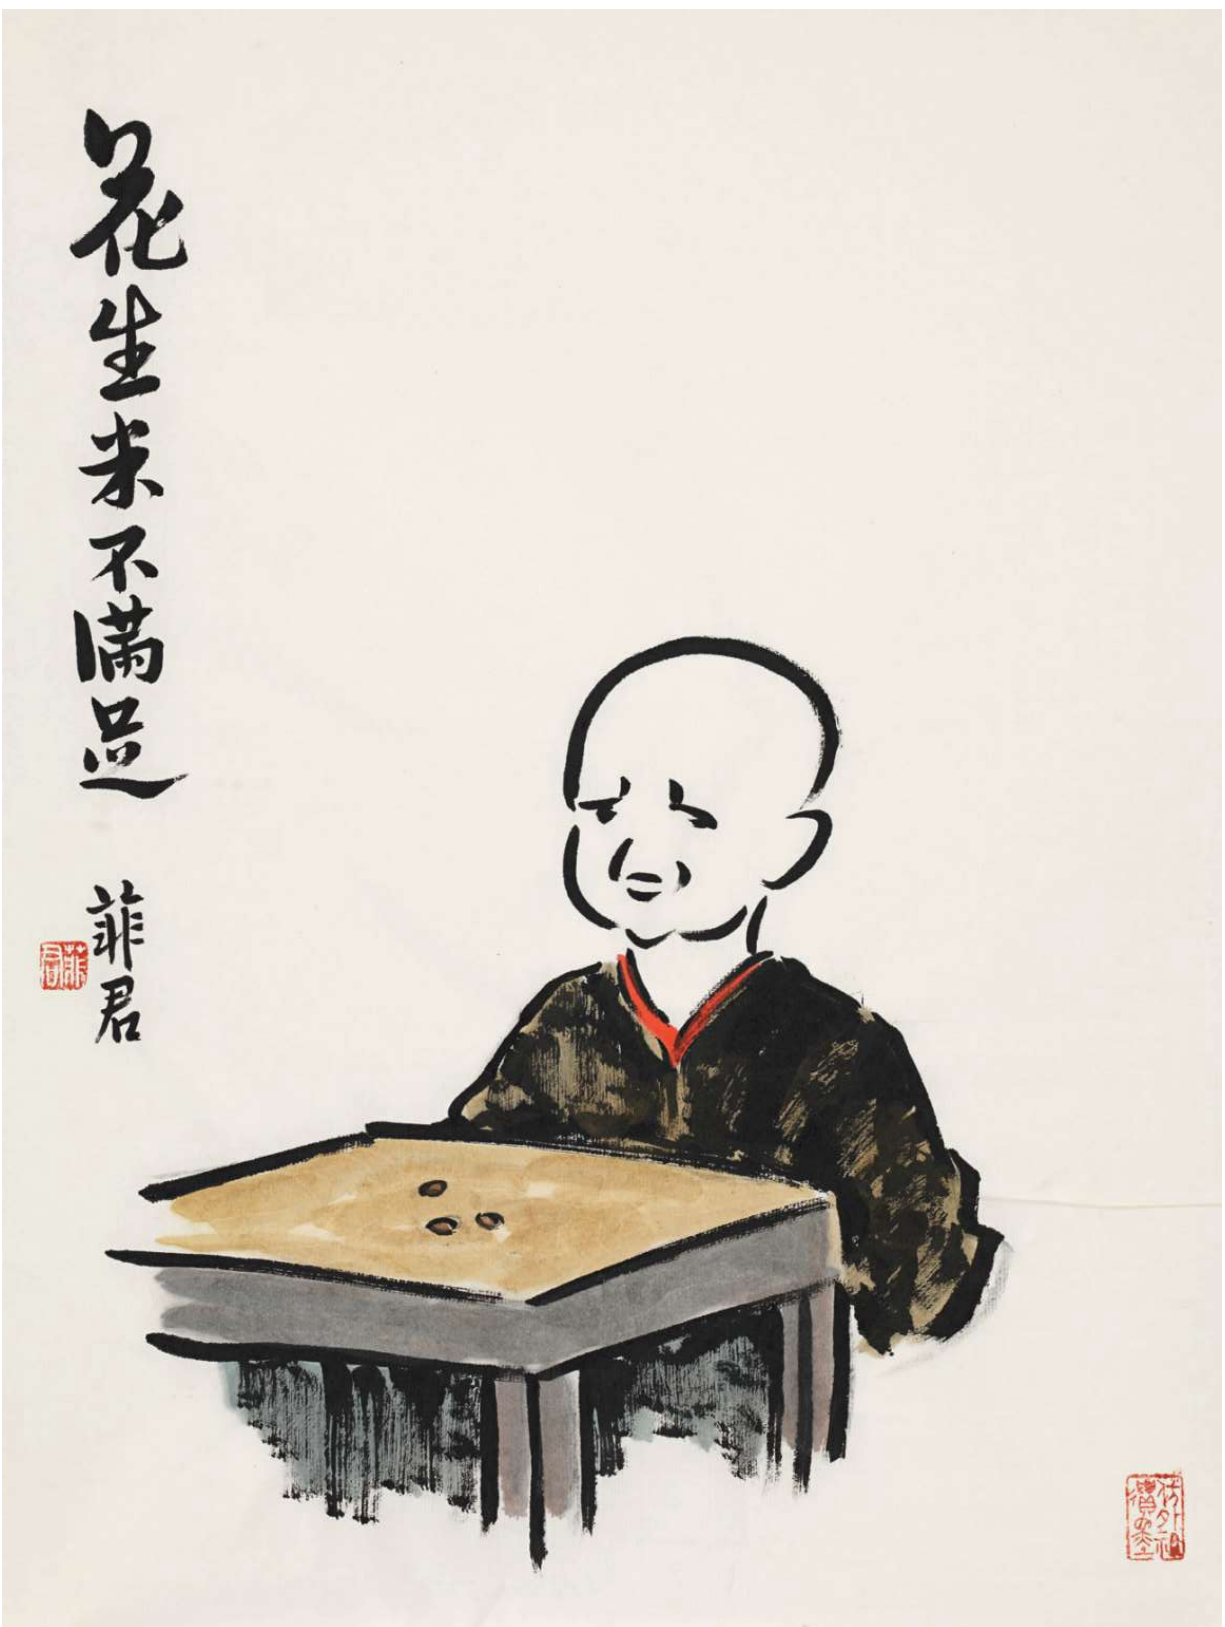 花生米不满足
菲君
菲君